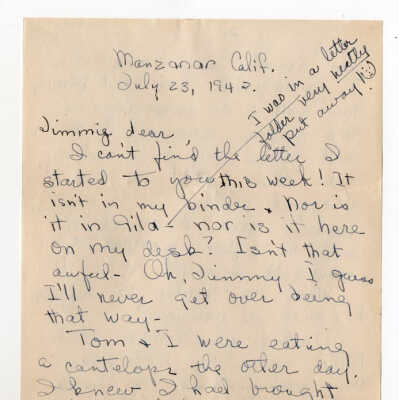 Manzanar Calif.
July 23, 1942.
I was in a letter
folder very neatly
put away!
Jimmie dear,
I can't find the letter I
started to you this week! It
isn't in my binder. Nor is
it in Gila - nor is it here
on my desk? Isn't that
awful - Oh, Jimmy I guess
I'll never get over being
that way -
Tom & I were eating
a cantelope the other day.
I knew I had brought